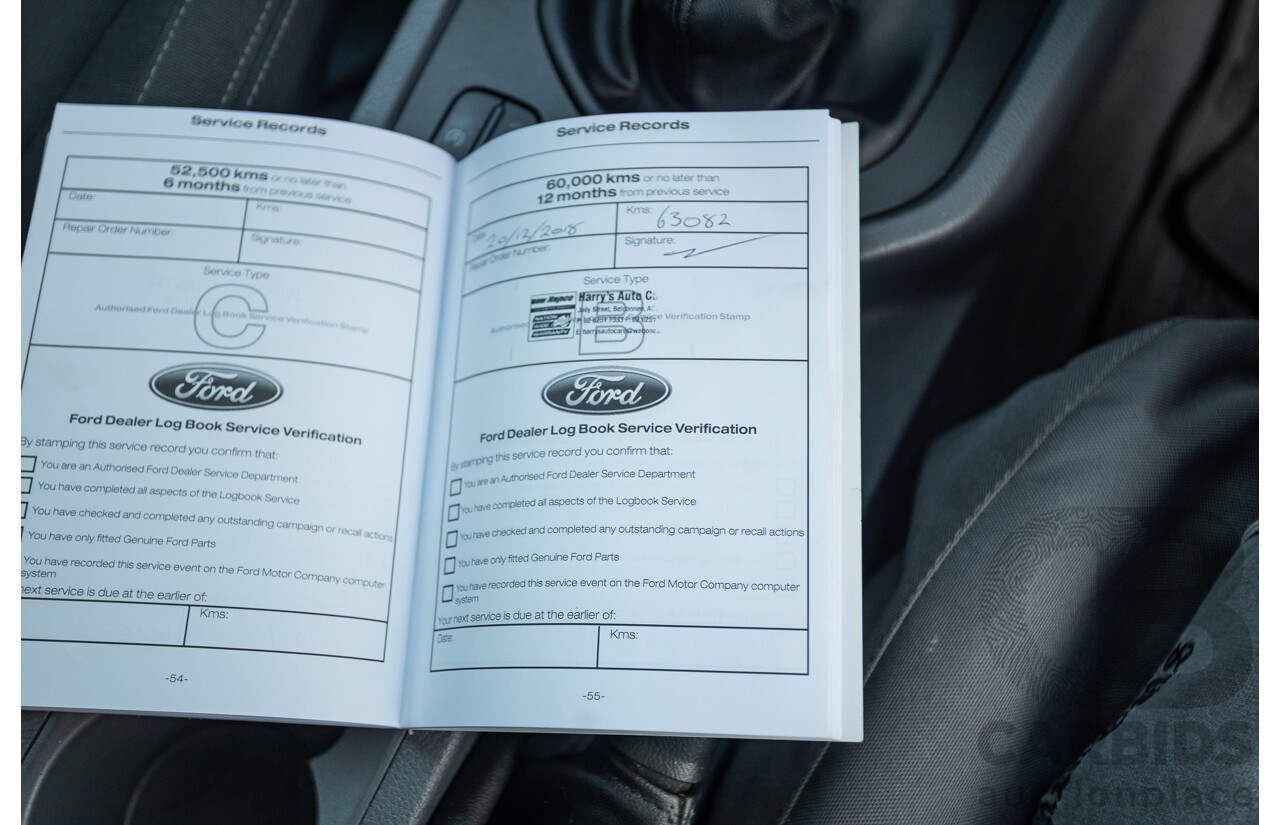 Service Records
52,500 kms or no later than
6 months from previous service
Date:
Kms:
Repair Order Number:
Signature:
Service Type
C
Authorised Ford Dealer Log Book Service Verification Stamp
Ford
Ford Dealer Log Book Service Verification
By stamping this service record you confirm that:
You are an Authorised Ford Dealer Service Department
You have completed all aspects of the Logbook Service
You have checked and completed any outstanding campaign or recall actions
You have only fitted Genuine Ford Parts
You have recorded this service event on the Ford Motor Company computer
system
next service is due at the earlier of:
Kms:
-54-
Service Records
60,000 kms or no later than
12 months from previous service
Date: 20/12/2018
Kms: 63082
Repair Order Number:
Signature:
Service Type
B
Repco
Harry's Auto
Street, Belconnen,
Authorised
Service Verification Stamp
Ford
Ford Dealer Log Book Service Verification
By stamping this service record you confirm that:
You are an Authorised Ford Dealer Service Department
You have completed all aspects of the Logbook Service
You have checked and completed any outstanding campaign or recall actions
You have only fitted Genuine Ford Parts
You have recorded this service event on the Ford Motor Company computer
system
Your next service is due at the earlier of:
Date:
Kms:
-55-
CARBIDS
auctionplace